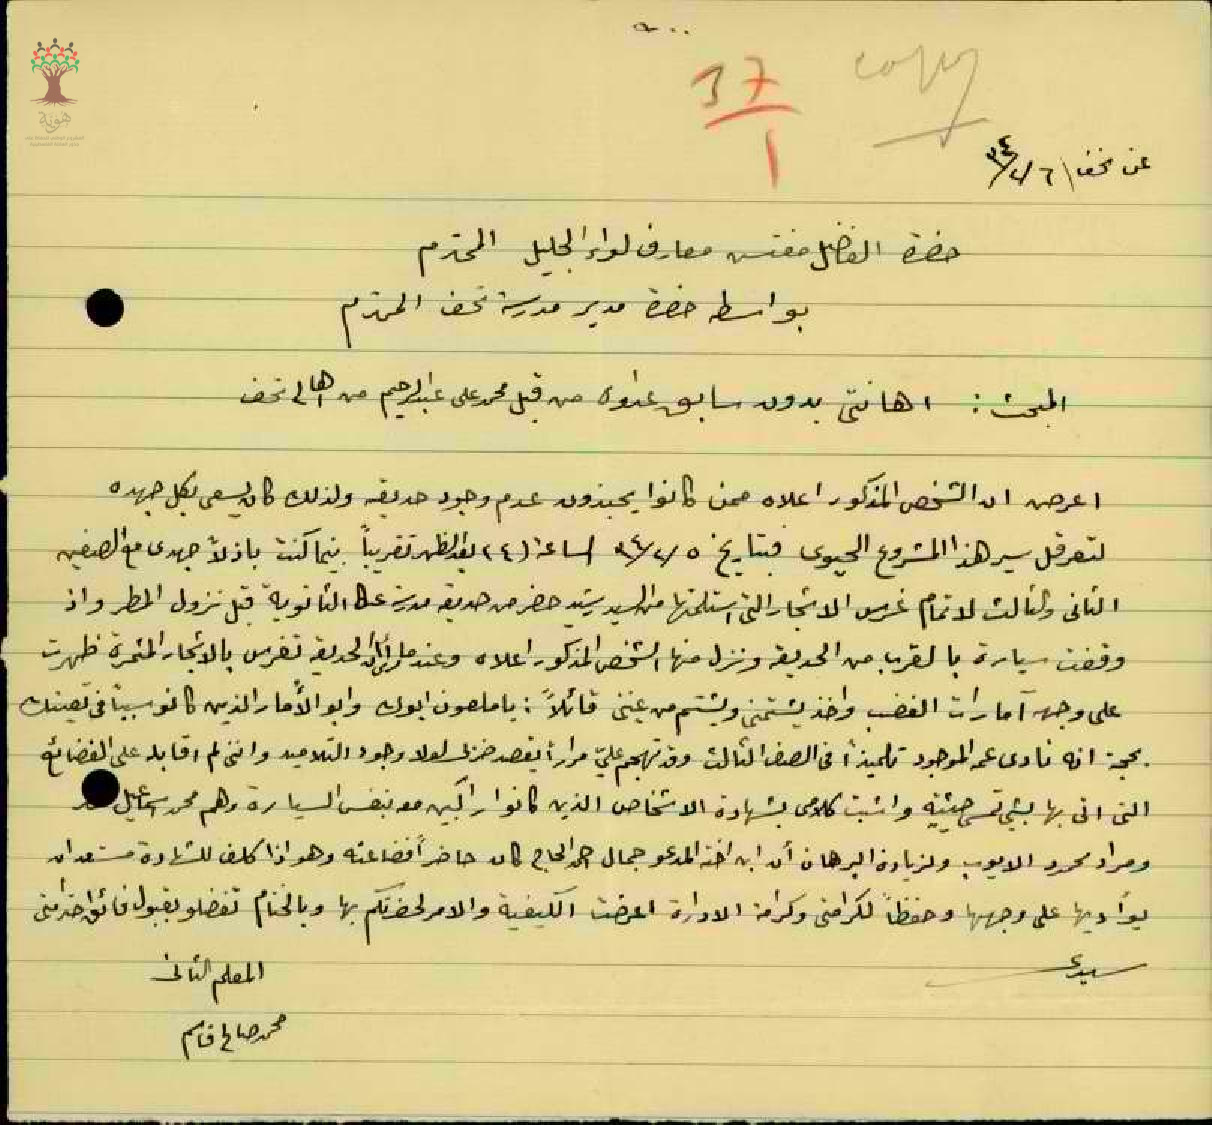 copy
37
1
عن نحف ٦/٢/٣٤
حضرة الفاضل مفتش معارف لواء الجليل المحترم
بواسطة حضرة مدير مدرسة نحف المحترم
المبحث: اهانتي بدون سابق عداوه من قبل محمد علي عبدالرحيم من اهالي نحف
اعرض ان الشخص المذكور اعلاه ممن كانوا يحبذون عدم وجود حديقه ولذلك كان يسعى بكل جهده
لتعرقل سير هذا المشروع الحيوى فبتاريخ ٥/٢/٣٤ الساعة بعد الظهر تقريباً بينما كنت باذلاً جهدى مع الصفين
الثاني والثالث لاتمام غرس الاشجار التي استلمتها من السيد رشيد خضر من حديقة مدرسة عكا الثانوية قبل نزول المطر واذ
وقفت سيارة بالقرب من الحديقه ونزل منها الشخص المذكور اعلاه وعندما رأى ان الحديقه تغرس بالاشجار المثمرة ظهرت
على وجهه آمارات الغضب واخذ يشتمني ويشتم من عينني قائلاً: يا ملعون ابوك وابو الذين كانو سببا في تعينك
بحجة انه نادى عمه الموجود تلميذاً في الصف الثالث وقد تهجم عليّ مراراً بقصد ضربي لولا وجود التلاميذ وانني لم اقابله على الفضائع
التي اتى بها بشيء واثبت كلامي بشهادة الاشخاص الذين كانوا راكبين معه بنفس السيارة وهم محمد اسماعيل
ومراد محمود الايوب ولزيادة البرهان أن ابن اخته المدعو جمال الحاج كان حاضراً فضاعته وهو اذا كلف للشهادة مستعد ان
يؤاديها على وجهها وحفظاً لكرامتي وكرامة الادارة اعرضت الكيفية والامر لحضرتكم بها وبالختام تفضلو بقبول فائق احترامتي
سيدى
المعلم الثاني
محمد صالح قاسم
هوية